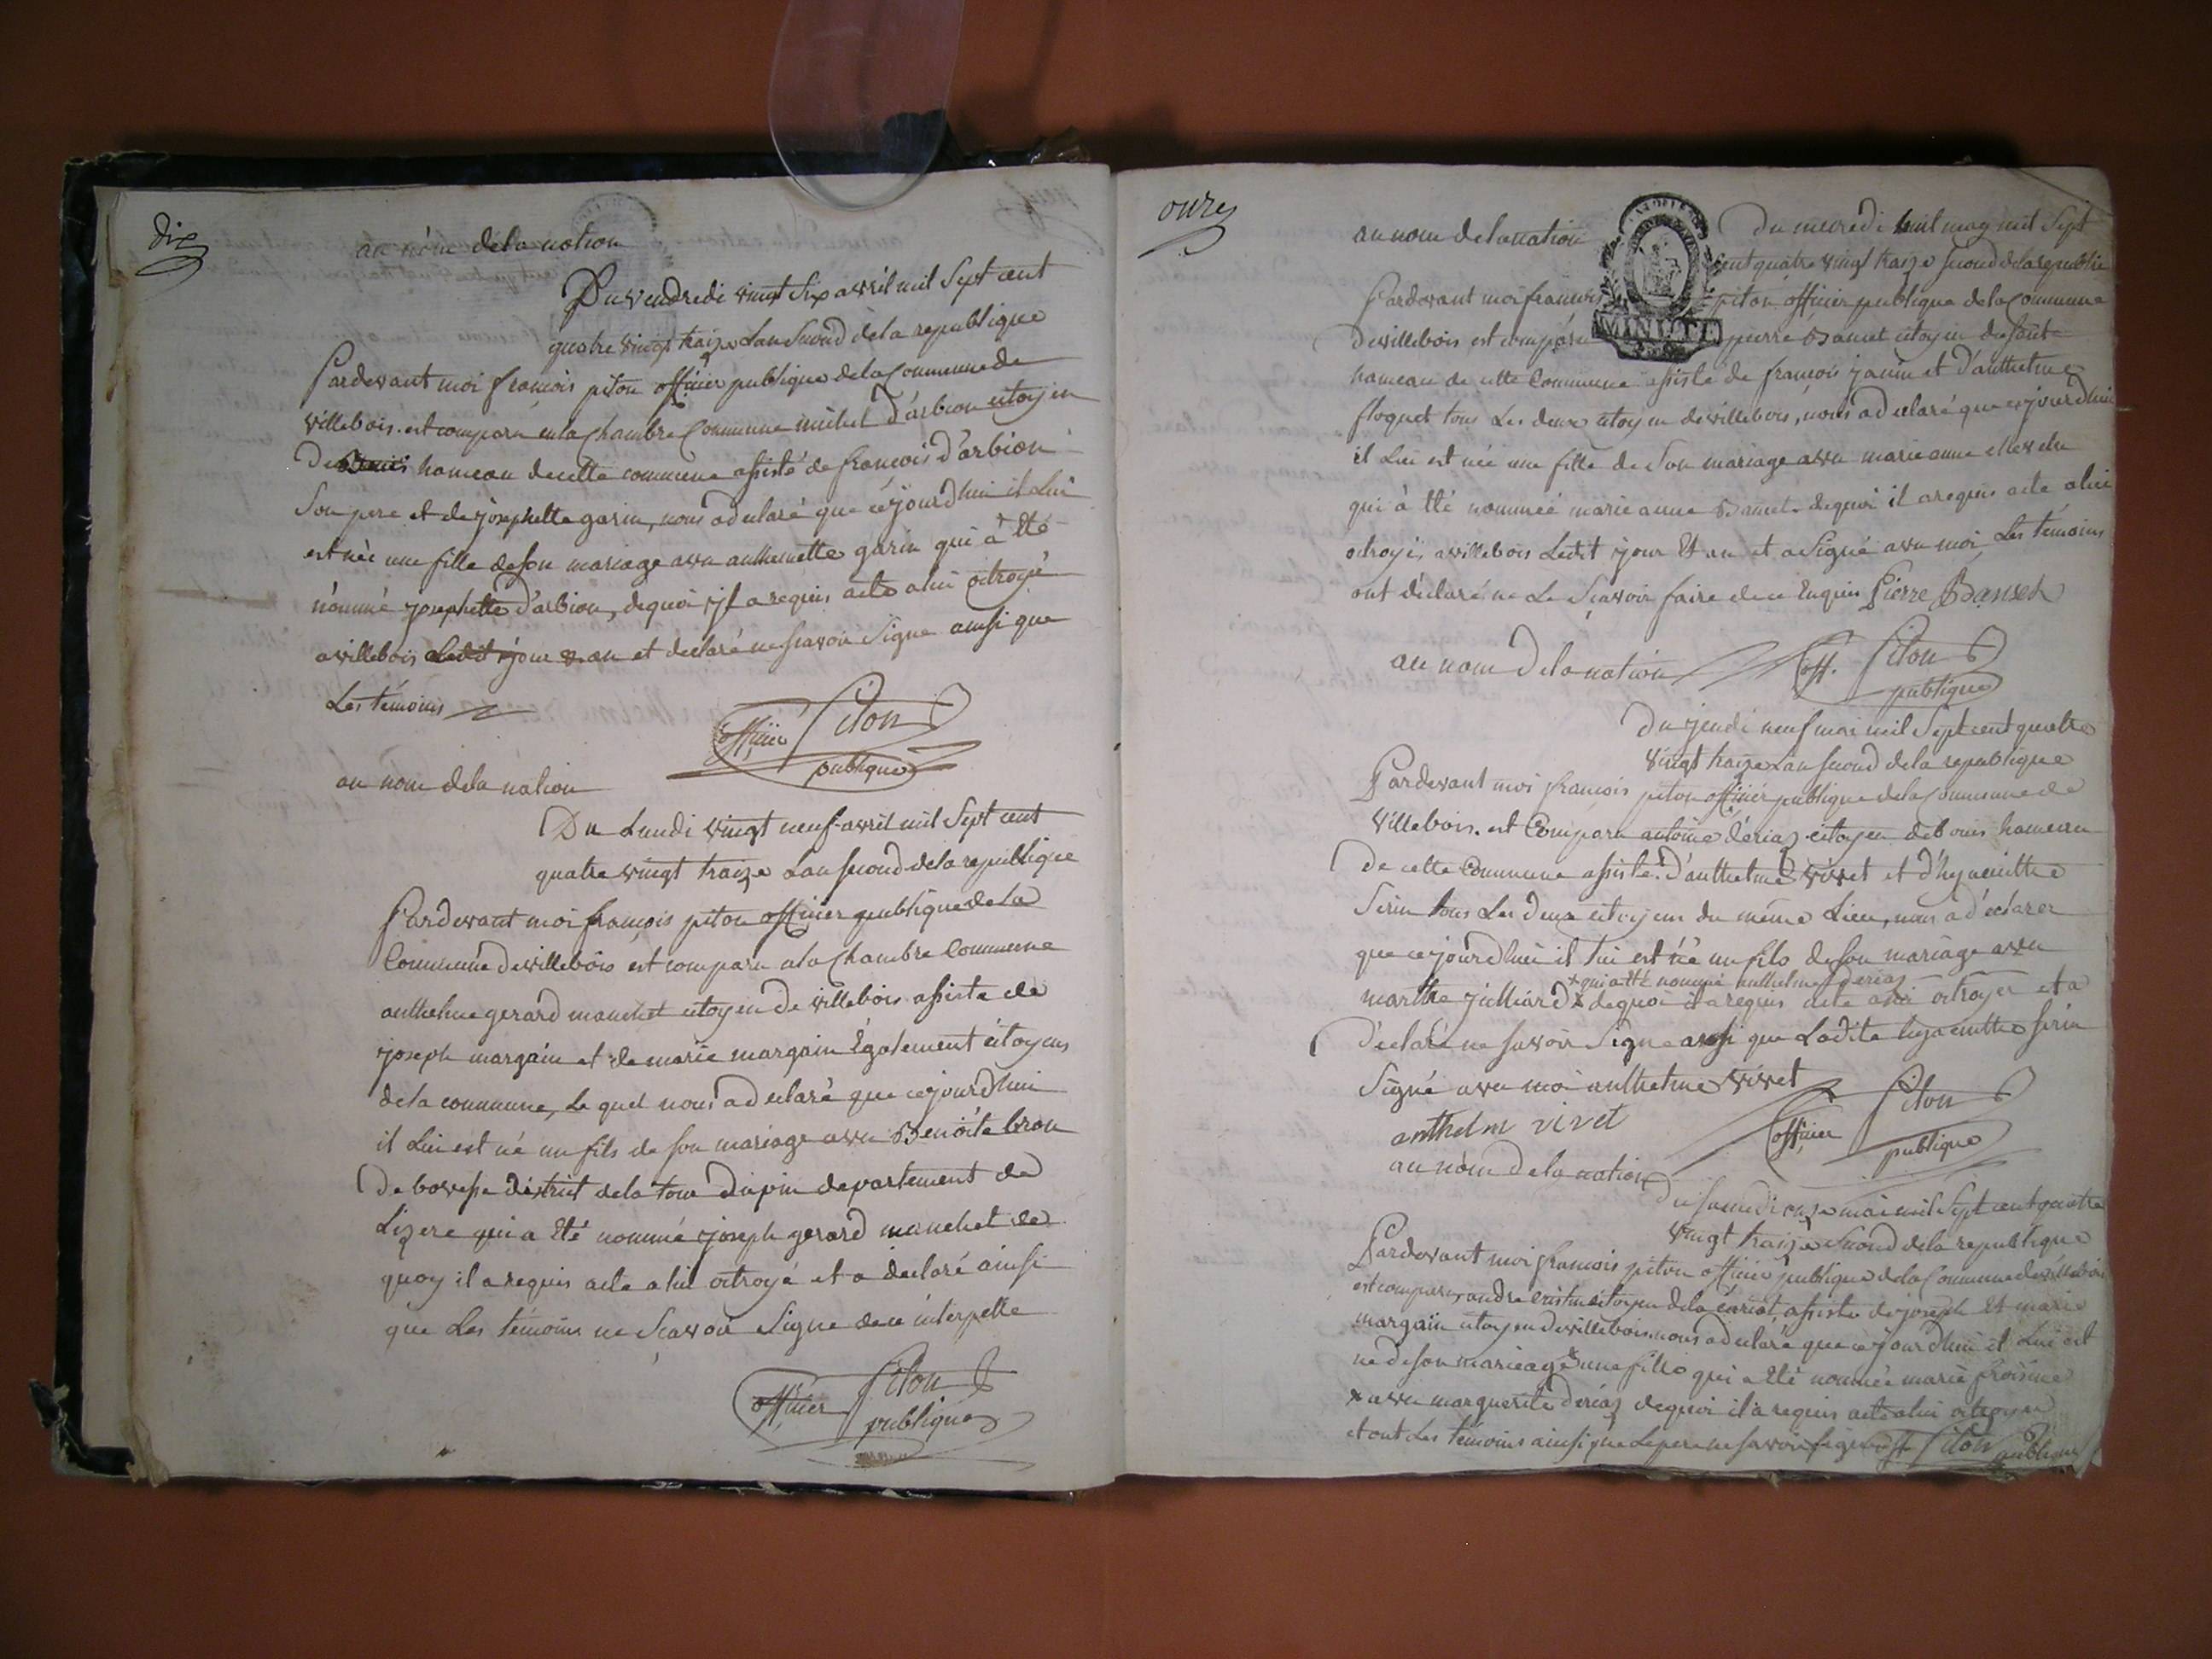 dix
au nom dela nation
Du vendredi vingt six avril mil sept cent
quatre vingt traize Lan second dela republique
Pardevant moi françois piton officier publique dela Commune de
villebois. est comparu en la Chambre Commune michel d'arbion citoyen
de hameau de cette commune assisté de francois d'arbion
Son pere et de josephette garin, nous a declaré que cejourd'huи il Lui
est née une fille de son mariage avec anthemette garin qui à été
nommé josephette d'arbion, dequoi il a requis acte a lui octroyé
a villebois Ledit jour & an et declaré ne scavoir Signe ainsi que
Les témoins
officier Piton publique
au nom dela nation
Du Lundi vingt neuf avril mil Sept cent
quatre vingt traize Lan second dela republique
Pardevant moi françois piton officier publique de la
Commune de villebois est comparu a la Chambre Commune
anthelme gerard manchet citoyen de villebois assiste de
joseph margain et de marie margain Également citoyens
de la commune, Le quel nous a declaré que cejourdhui
il Lui est né un fils de son mariage avec Benoite bron
De bovesse district dela tour Dupin departement de
Lizere qui a Eté nommé joseph gerard manchet de
quoy il a requis acte a lui octroyé et a declaré ainsi
que Les témoins ne Scavoir Signe de ce interpelle
officier Piton publique
onze
au nom de la nation
MINUTE
Du mecredi huit may mil Sept
cent quatre vingt traize second dela republi
Pardevant moi francois piton officier publique de la Commune
De villebois est comparu pierre Banset citoyen du
hameau de cette Commune assiste de francois janin et d'anthelme
floquet tous Les deux citoyen de villebois, nous a declaré que cejourdhui
il Lui est née une fille de Son mariage avec marie anne chevelu
qui à été nommeé marie anne Banset. dequoi il a requis acte a lui
octroyé a villebois Ledit jour Et an et a Signé avec moi Les témoins
ont déclaré ne Le Sçavoir faire de ce Enquis Pierre Banset
au nom De la nation off. Piton publique
Du jeudi neuf mai mil Sept cent quatre
vingt traize Lan second dela republique
Pardevant moi francois piton officier publique dela Commune de
Villebois. est Comparu antoine dériaz citoyen de bouis hameau
De cette Commune assiste d'anthelme vivet et d'hyacinthe
Serin tous Les Deux citoyens du même Lieu, nous a déclarer
que cejourdhui il lui est né un fils de son mariage avec
x qui a été nommé anthelme deriaz
marthe juilliard x dequoi il a requis acte a lui octroyer et a
Déclaré ne savoir Signe ainsi que Ladite hyacinthe serin
Signé avec moi anthelme vivet
anthelm vivet officier Piton publique
au nom De la nation
Du samedi onze mai mil Sept cent quatre
vingt traize Second dela republique
Pardevant moi francois piton officier publique dela Commune de villebois
est comparu andre citoyen de la assiste de joseph Et marie
margain citoyen de villebois. nous a declaré que ce jourdhui il Lui est
né de son marieage x une fille qui a Eté nommée marie
x avec marguerite deriaz dequoi il à requis acte a lui octroyer
et ont Les témoins ainsi que Le pere ne savoir signe off Piton publique